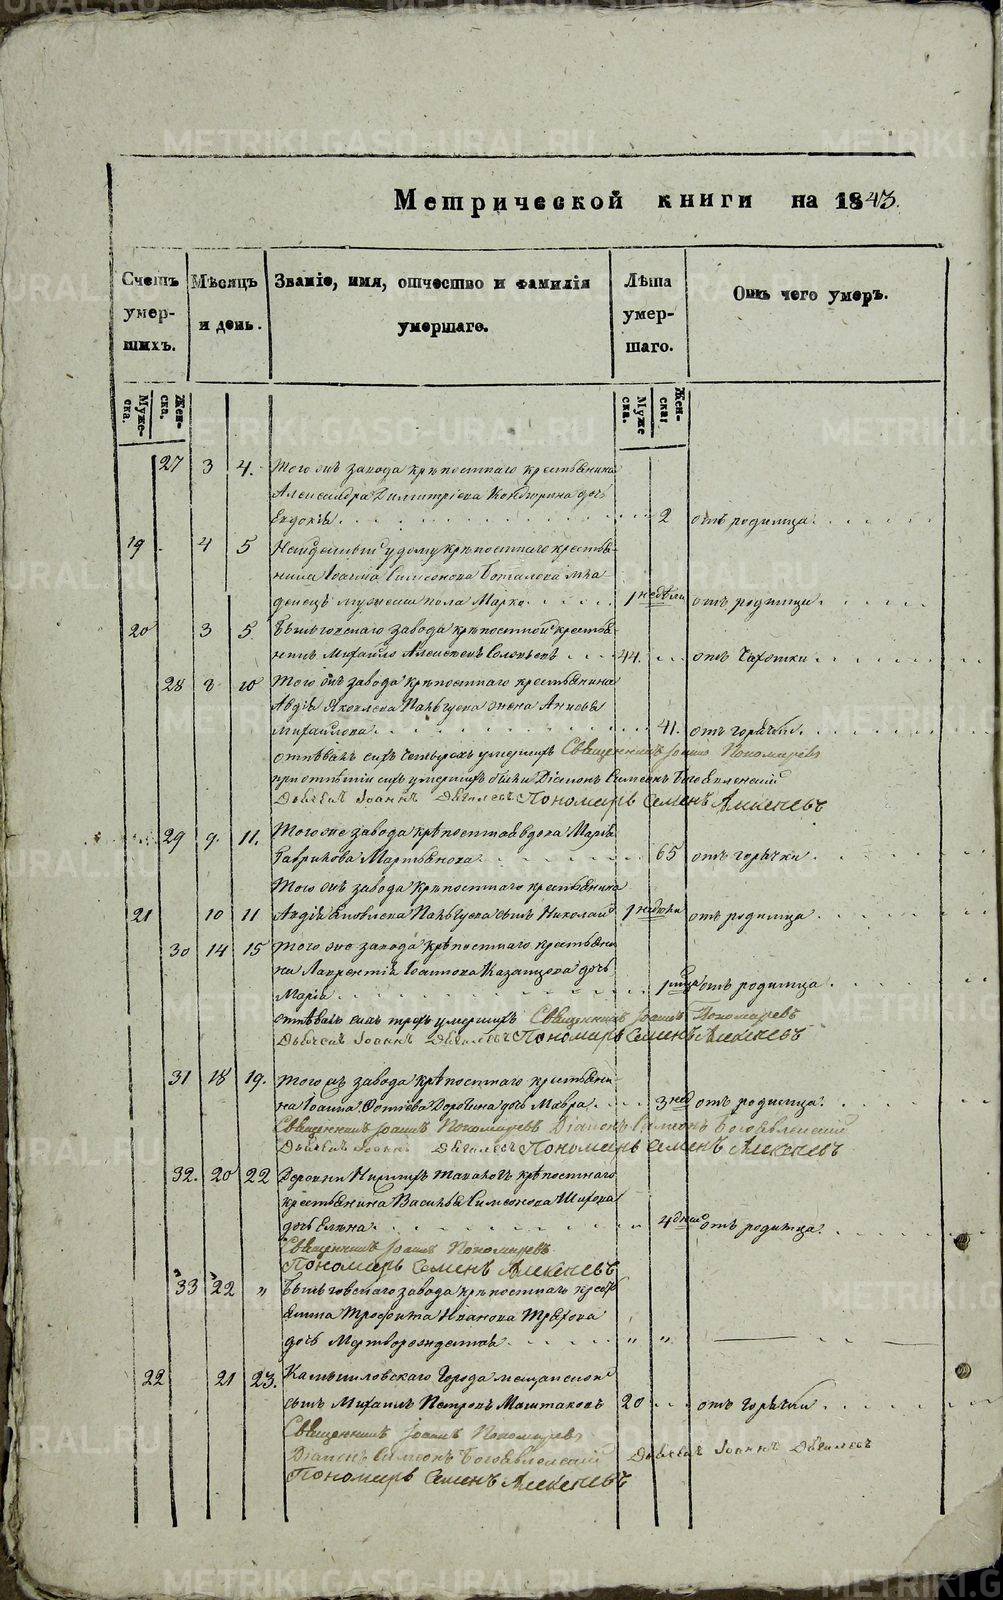 METRIKI.GASO-URAL.RU
Метрической книги на 1843.
Счетъ умер-
шихъ.
Мѣсяцъ
и день.
Званіе, имя, отчество и фамилія
умершаго.
Лѣта
умер-
шаго.
Отъ чего умеръ.
Муже-
ска.
Жен-
ска.
Муже
ска.
Жен-
ска.
27 3 4. Того жъ завода крѣпостнаго крестьянина
Александра Димитріева дочь
Евдокія 2 отъ родимца.
19 4 5 у дому крѣпостнаго крестья-
нина Іоанна Симеонова мла-
денецъ мужеска пола Марко 1 недѣли отъ родимца.
20 3 5 завода крѣпостной крестья-
нинъ Михайло Алексѣевъ 44. отъ чахотки
28 8 10 Того жъ завода крѣпостнаго крестьянина
Авдія Яковлева жена Анисья
Михайлова 41. отъ горячки.
отпѣвалъ сихъ четырехъ умершихъ Священникъ Іоаннъ Пономаревъ
при отпѣтіи сихъ умершихъ были Діаконъ Симеонъ Богоявленскій
Дьячекъ Іоаннъ Пономарь Семенъ
29 9. 11. Того же завода крѣпостная вдова Марія
Гаврилова Мартьянова 65 отъ горячки.
Того жъ завода крѣпостнаго крестьянина
21 10 11 Авдія Яковлева сынъ Николай 1 недѣли отъ родимца
30 14 15 Того же завода крѣпостнаго крестьяни-
на Лаврентія Іоаннова Казанцова дочь
Марія 1 отъ родимца
отпѣвалъ сихъ трехъ умершихъ Священникъ Іоаннъ Пономаревъ
Дьячекъ Іоаннъ Пономарь Семенъ
31 18 19. Того жъ завода крѣпостнаго крестьяни-
на Іоанна дочь Мавра 3 нед отъ родимца.
Священникъ Іоаннъ Пономаревъ Діаконъ Симеонъ Богоявленскій
Дьячекъ Іоаннъ Пономарь Семенъ
32. 20 22 Деревни крѣпостнаго
крестьянина Василья Симеонова
дочь Елена 4 дней отъ родимца.
Священникъ Іоаннъ Пономаревъ
Пономарь Семенъ
33 22 „ завода крѣпостнаго крестья-
Иванова
дочь Мертворожденная „ „
22 21 23. Камышловскаго Города мещанской
сынъ Михаилъ Петровъ Маштаковъ 20 отъ горячки
Священникъ Іоаннъ Пономаревъ
Діаконъ Симеонъ Богоявленскій Дьячекъ Іоаннъ
Пономарь Семенъ